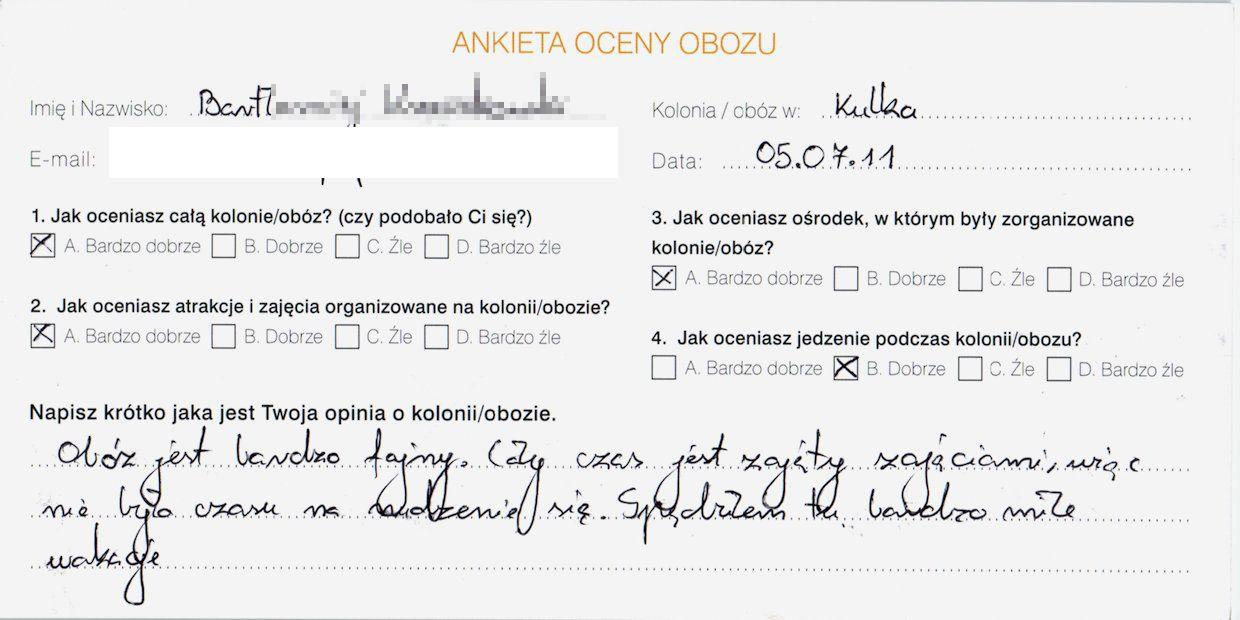 ANKIETA OCENY OBOZU
Imię i Nazwisko:
E-mail:
Kolonia / obóz w: Kulka
Data: 05.07.11
1. Jak oceniasz całą kolonie/obóz? (czy podobało Ci się?)
A. Bardzo dobrze B. Dobrze C. Źle D. Bardzo źle
2. Jak oceniasz atrakcje i zajęcia organizowane na kolonii/obozie?
A. Bardzo dobrze B. Dobrze C. Źle D. Bardzo źle
3. Jak oceniasz ośrodek, w którym były zorganizowane
kolonie/obóz?
A. Bardzo dobrze B. Dobrze C. Źle D. Bardzo źle
4. Jak oceniasz jedzenie podczas kolonii/obozu?
A. Bardzo dobrze B. Dobrze C. Źle D. Bardzo źle
Napisz krótko jaka jest Twoja opinia o kolonii/obozie.
Obóz jest bardzo fajny. Cały czas jest zajęty zajęciami, więc
nie było czasu na nudzenie się. Spędziłem tu bardzo miłe
wakacje